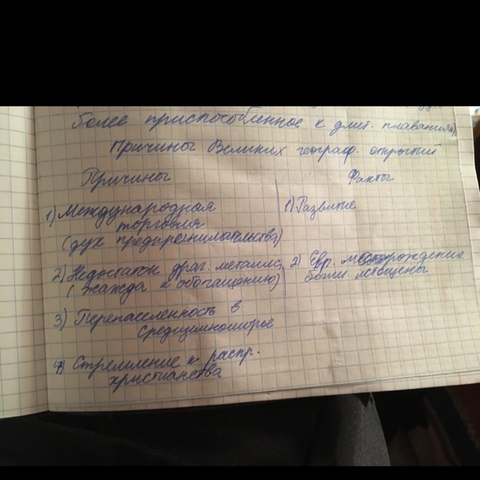 более приспособленное к длит. плаваниям).
Причины Великих географ. открытий
Причины Факты
1) Международная
торговля
(дух предпренимательства)
1) Развитие
2) Недостаток драг. металлс,
(жажда к обогащению)
2) Евр. месторождение
были истощены
3) Перенаселенность в
Средиземноморье
4) Стремление к распр.
христианства